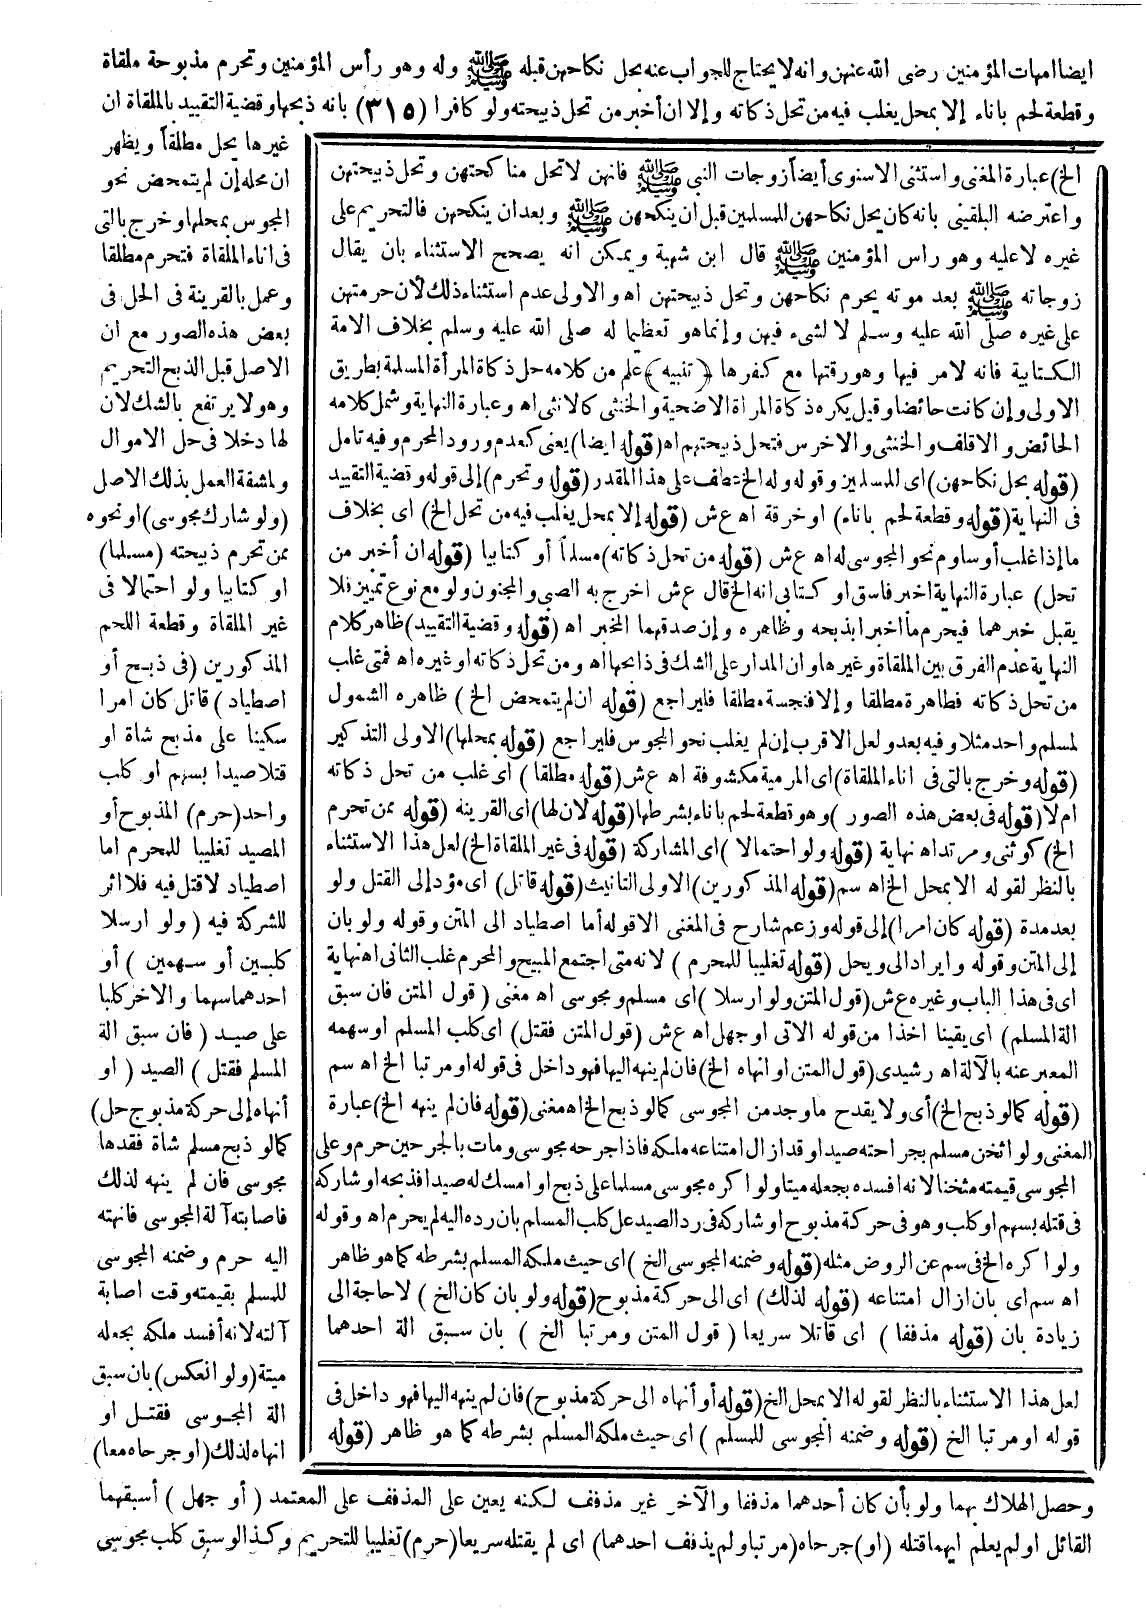 ايضا امهات المؤمنين رضى الله عنهن وانه لا يحتاج للجواب عنه بحل نكاحهن قبله ﷺ وله وهو رأس المؤمنين وتحرم مذبوحة ملقاة
وقطعة لحم باناء إلا بمحل يغلب فيه من تحل ذكاته وإلا ان أخبر من تحل ذبيحته ولو كافرا (٣١٥) بانه ذبحها وقضية التقييد بالملقاة ان
غيرها يحل مطلقاً ويظهر
ان محله إن لم يتمحض نحو
المجوس بمحلها وخرج بالتى
فى اناء الملقاة فتحرم مطلقا
وعمل بالقرينة فى الحل فى
بعض هذه الصور مع ان
الاصل قبل الذبح التحريم
وهو لا يرتفع بالشك لان
لها دخلا فى حل الاموال
ولمشقة العمل بذلك الاصل
(ولو شارك مجوسى) او نحوه
ممن تحرم ذبيحته (مسلما)
او كتابيا ولو احتمالا فى
غير الملقاة وقطعة اللحم
المذكورين (فى ذبح أو
اصطياد) قاتل كان امرا
سكينا على مذبح شاة او
قتلا صيدا بسهم او كلب
واحد (حرم) المذبوح أو
المصيد تغليبا للمحرم اما
اصطياد لا قتل فيه فلا اثر
للشركة فيه (ولو ارسلا
كلبين أو سهمين) أو
احدهما سهما والاخر كلبا
على صيد (فان سبق الة
المسلم فقتل) الصيد (او
أنهاه إلى حركة مذبوح حل)
كما لو ذبح مسلم شاة فقدها
مجوسى فان لم ينهه لذلك
فاصابته آلة المجوسى فانهته
اليه حرم وضمنه المجوسى
للمسلم بقيمته وقت اصابة
آلته لانه أفسد ملكه بجعله
ميتة (ولو انعكس) بان سبق
الة المجوسى فقتل او
انهاه لذلك (او جرحاه معا)
الخ) عبارة المغنى واستثنى الاسنوى أيضاً زوجات النبى ﷺ فانهن لا تحل مناكحتهن وتحل ذبيحتهن
واعترضه البلقينى بانه كان يحل نكاحهن للمسلمين قبل ان ينكحهن ﷺ وبعد ان ينكحهن فالتحريم على
غيره لا عليه وهو راس المؤمنين ﷺ قال ابن شهبة ويمكن انه يصحح الاستثناء بان يقال
زوجاته ﷺ بعد موته يحرم نكاحهن وتحل ذبيحتهن اه والاولى عدم استثناء ذلك لأن حرمتهن
على غيره صلى الله عليه وسلم لا لشىء فيهن وإنما هو تعظيما له صلى الله عليه وسلم بخلاف الامة
الكتابية فانه لامر فيها وهو رقتها مع كفرها (تنبيه) علم من كلامه حل ذكاة المرأة المسلمة بطريق
الاولى وإن كانت حائضا وقيل يكره ذكاة المراة الاضحية والخنثى كالانثى اه وعبارة النهاية وشمل كلامه
الحائض والاقلف والخنثى والاخرس فتحل ذبيحتهم اه (قوله ايضا) يعنى كعدم ورود المحرم وفيه تامل
(قوله بحل نكاحهن) اى للمسلمين وقوله وله الخ عطف على هذا المقدر (قوله وتحرم) إلى قوله وقضية التقييد
فى النهاية (قوله وقطعة لحم باناء) او خرقة اه ع ش (قوله إلا بمحل يغلب فيه من تحل الخ) اى بخلاف
ما إذا غلب أو ساوم نحو المجوسى له اه ع ش (قوله من تحل ذكاته) مسلماً أو كتابيا (قوله ان أخبر من
تحل) عبارة النهاية اخبر فاسق او كتابى انه الخ قال ع ش اخرج به الصبى والمجنون ولو مع نوع تمييز فلا
يقبل خبرهما فيحرم ما أخبرا بذبحه وظاهره وإن صدقهما المخبر اه (قوله وقضية التقييد) ظاهر كلام
النهاية عدم الفرق بين الملقاة وغيرها وان المدار على الشك فى ذابحها اه ومن تحل ذكاته او غيره اه فمتى غلب
من تحل ذكاته فطاهرة مطلقا وإلا فنجسة مطلقا فليراجع (قوله ان لم يتمحض الخ) ظاهره الشمول
لمسلم واحد مثلا وفيه بعد ولعل الاقرب إن لم يغلب نحو المجوس فليراجع (قوله بمحلها) الاولى التذكير
(قوله وخرج بالتى فى اناء الملقاة) اى المرمية مكشوفة اه ع ش (قوله مطلقا) اى غلب من تحل ذكاته
ام لا (قوله فى بعض هذه الصور) وهو قطعة لحم باناء بشرطها (قوله لان لها) اى القرينه (قوله ممن تحرم
الخ) كوثنى ومرتد اه نهاية (قوله ولو احتمالا) اى المشاركة (قوله فى غير الملقاة الخ) لعل هذا الاستثناء
بالنظر لقوله الا بمحل الخ اه سم (قوله المذكورين) الاولى التانيث (قوله قاتل) اى مؤد إلى القتل ولو
بعد مدة (قوله كان امرا) إلى قوله وزعم شارح فى المغنى الا قوله أما اصطياد الى المتن وقوله ولو بان
إلى المتن وقوله وايراد الى ويحل (قوله تغليبا للمحرم) لانه متى اجتمع المبيح والمحرم غلب الثانى اه نهاية
اى فى هذا الباب وغيره ع ش (قول المتن ولو ارسلا) اى مسلم ومجوسى اه مغنى (قول المتن فان سبق
الة المسلم) اى يقينا اخذا من قوله الاتى او جهل اه ع ش (قول المتن فقتل) اى كلب المسلم او سهمه
المعبر عنه بالآلة اه رشيدى (قول المتن او انهاه الخ) فان لم ينهه اليها فهو داخل فى قوله او مرتبا الخ اه سم
(قوله كما لو ذبح الخ) أى ولا يقدح ما وجد من المجوسى كما لو ذبح الخ اه مغنى (قوله فان لم ينهه الخ) عبارة
المغنى ولو اثخن مسلم بجراحته صيدا وقد ازال امتناعه ملكه فاذا جرحه مجوسى ومات بالجرحين حرم وعلى
المجوسى قيمته مثخنا لانه افسده بجعله ميتا ولو اكره مجوسى مسلما على ذبح او امسك له صيدا فذبحه او شاركه
فى قتله بسهم او كلب وهو فى حركة مذبوح او شاركه فى رد الصيد على كلب المسلم بان رده اليه لم يحرم اه وقوله
ولو اكره الخ فى سم عن الروض مثله (قوله وضمنه المجوسى الخ) اى حيث ملكه المسلم بشرطه كما هو ظاهر
اه سم اى بان ازال امتناعه (قوله لذلك) اى الى حركة مذبوح (قوله ولو بان كان الخ) لا حاجة الى
زيادة بان (قوله مذففا) اى قاتلا سريعا (قول المتن ومرتبا الخ) بان سبق الة احدهما
لعل هذا الاستثناء بالنظر لقوله الا بمحل الخ (قوله أو أنهاه الى حركة مذبوح) فان لم ينهه اليها فهو داخل فى
قوله او مرتبا الخ (قوله وضمنه المجوسى للمسلم) اى حيث ملكه المسلم بشرطه كما هو ظاهر (قوله
وحصل الهلاك بهما ولو بأن كان أحدهما مذففا والآخر غير مذفف لكنه يعين على المذفف على المعتمد (أو جهل) أسبقهما
القائل او لم يعلم ايهما قتله (او) جرحاه (مرتبا ولم يذفف احدهما) اى لم يقتله سريعا (حرم) تغليبا للتحريم وكذا لو سبق كلب مجوسى